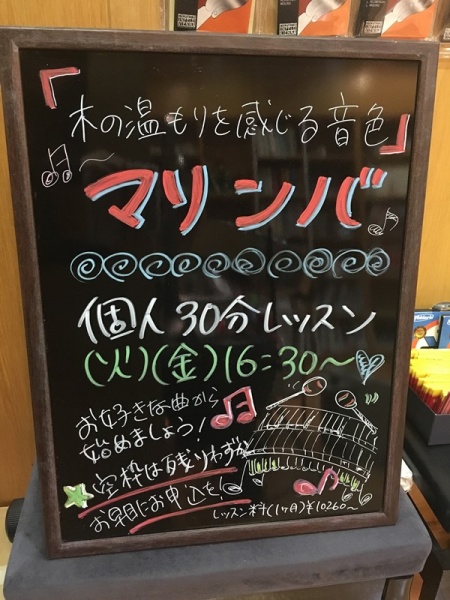 「木の温もりを感じる音色」
マリンバ
個人30分レッスン
(火)(金)16:30〜
お好きな曲から
始めましょう！
空枠は残りわずか
お早目にお申込を！
レッスン料(1ヶ月)¥10260〜